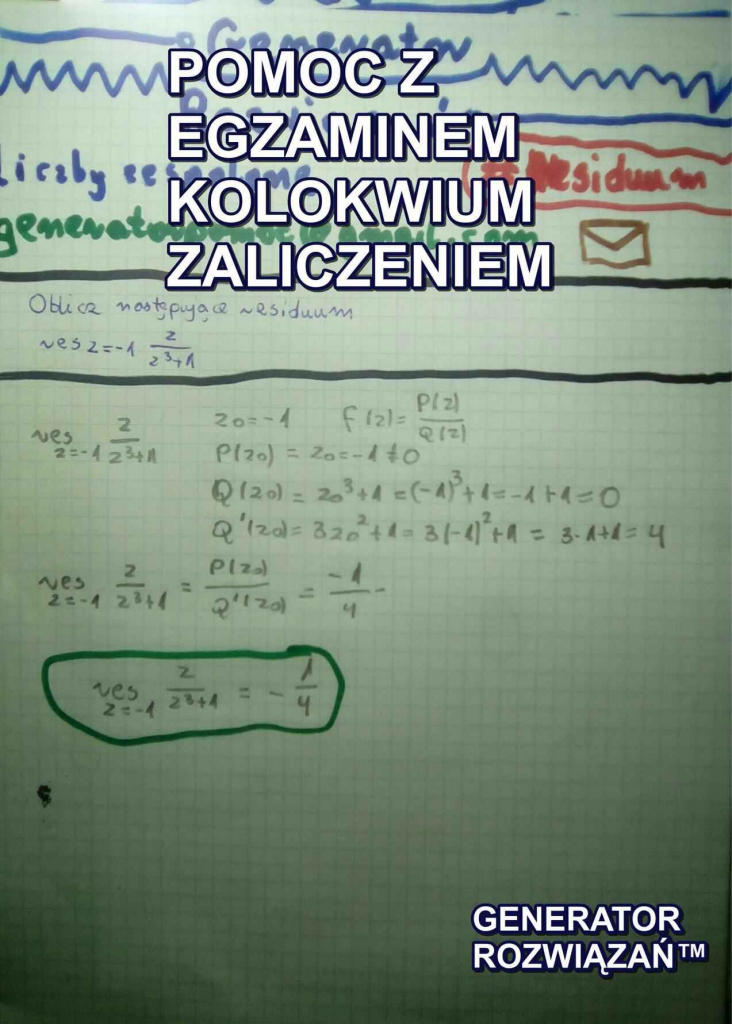 Generator
POMOC Z
EGZAMINEM
KOLOKWIUM
ZALICZENIEM
Liczby
#Residuum
Oblicz następujące residuum
res z=-1 z/z³+1
res z=-1 z/z³+1
z0=-1 f(z)= P(z)/Q(z)
P(z0) = z0=-1≠0
Q(z0) = z0³+1 =(-1)³+1=-1+1=0
Q'(z0)= 3z0²+1= 3(-1)²+1 = 3·1+1= 4
res z=-1 z/z³+1 = P(z0)/Q'(z0) = -1/4 -
res z=-1 z/z³+1 = - 1/4
GENERATOR
ROZWIĄZAŃ™